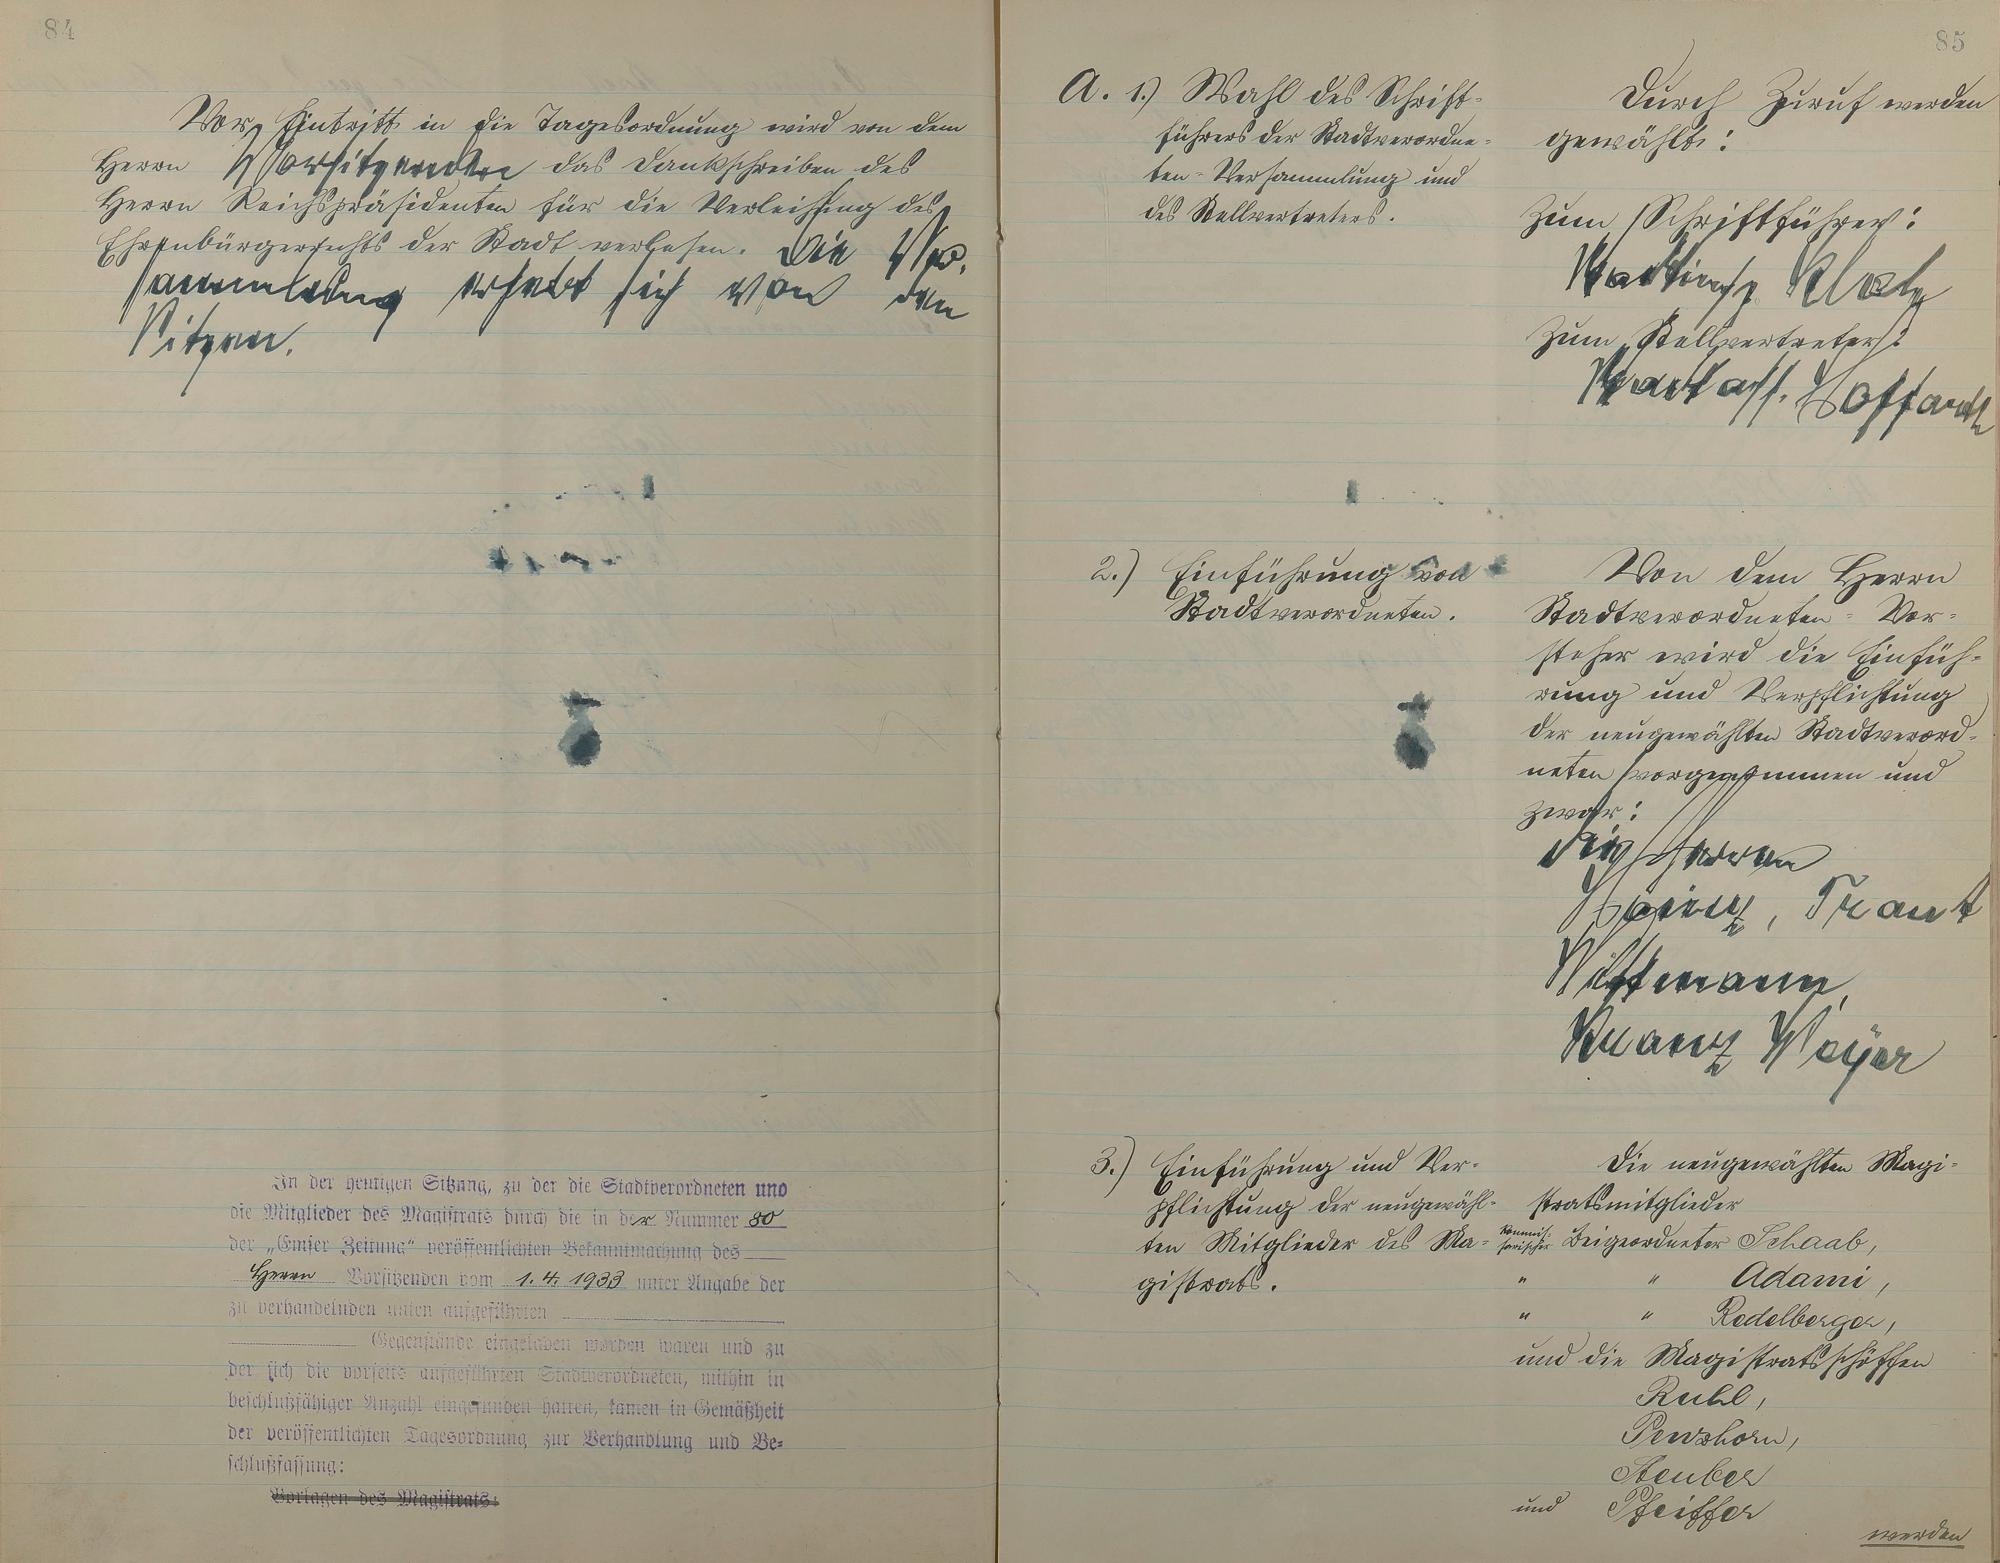 84
Vor Eintritt in die Tagesordnung wird von dem
Herrn Vorsitzenden das Dankschreiben des
Herrn Reichspräsidenten für die Verleihung des
Ehrenbürgerrechts der Stadt verlesen. Die Ver-
sammlung erhebt sich von den
Sitzen.
In der heutigen Sitzung, zu der die Stadtverordneten und
die Mitglieder des Magistrats durch die in der Nummer 80
der „Emser Zeitung“ veröffentlichten Bekanntmachung des
Herrn Vorsitzenden vom 1.4.1933 unter Angabe der
zu verhandelnden unten aufgeführten
Gegenstände eingeladen worden waren und zu
der sich die vorseits aufgeführten Stadtverordneten, mithin in
beschlußfähiger Anzahl eingefunden hatten, kamen in Gemäßheit
der veröffentlichten Tagesordnung zur Verhandlung und Be-
schlußfassung:
Vorlagen des Magistrats:
85
A. 1.) Wahl des Schrift-
führers der Stadtverordne-
ten-Versammlung und
des Stellvertreters.
Durch Zuruf werden
gewählt:
Zum Schriftführer:
Klotz
Zum Stellvertreter:
Hoffarth
2.) Einführung von
Stadtverordneten.
Von dem Herrn
Stadtverordneten-Vor-
steher wird die Einfüh-
rung und Verpflichtung
der neugewählten Stadtverord-
neten vorgenommen und
zwar:
die Herren
Heinz, Traut
Wittmann,
Kranz Weyer
3.) Einführung und Ver-
pflichtung der neugewähl-
ten Mitglieder des Ma-
gistrats.
Die neugewählten Magi-
stratsmitglieder
kommis-
sarischer Beigeordneter Schaab,
" " Adami,
" " Redelberger,
und die Magistratsschöffen
Ruhl,
Pewshorn,
Steuber
und Pfeiffer
werden